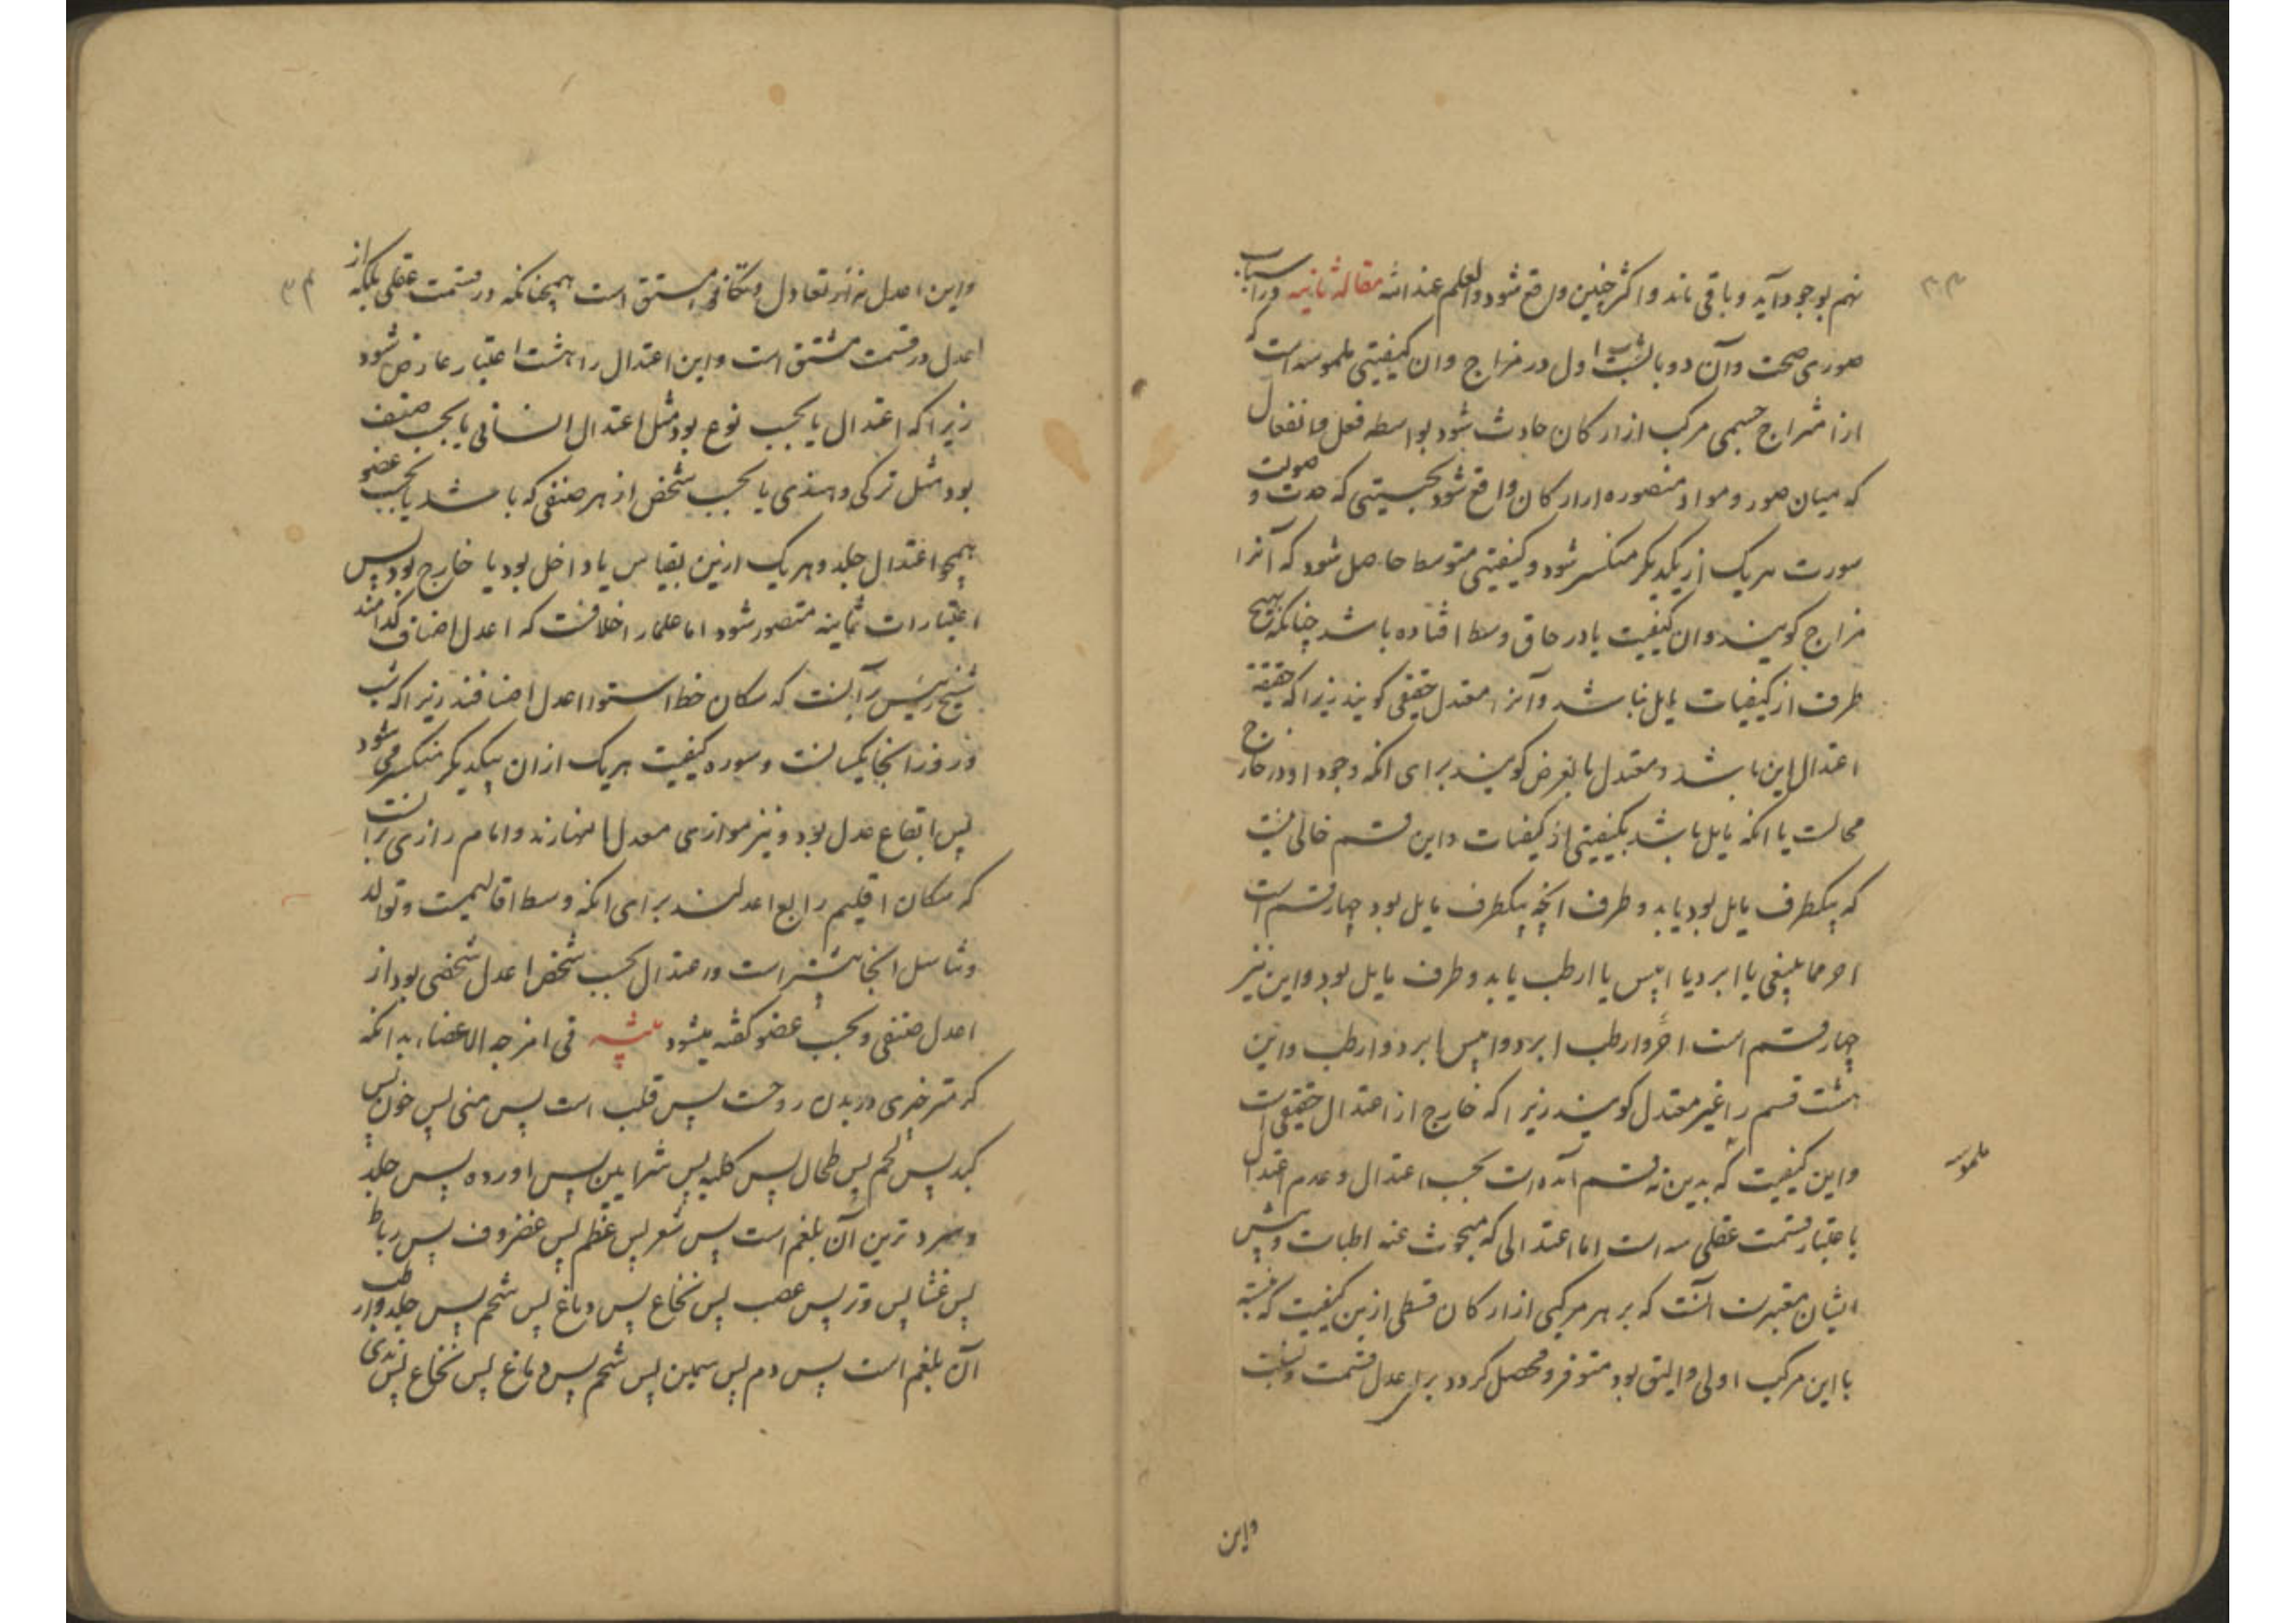 نهم بوجود آید و باقی ماند و اکثر چنین واقع شود والعلم عند الله مقالهٔ ثانیه در اسباب
صوری صحت و آن دو بابست باب اول در مزاج و ان کیفیتی ملموسه است که
از امتزاج جسمی مرکب از ارکان حادث شود بواسطه فعل و انفعال
که میان صور و مواد متصوره از ارکان واقع شود بحیثیتی که حدت و صولت
سورت هر یک از یکدیکر منکسر شود و کیفیتی متوسط حاصل شود که آنرا
مزاج کویند و ان کیفیت یا در حاق وسط افتاده باشد چنانکه بهیچ
طرف از کیفیات مایل نباشد و آنرا معتدل حقیقی کویند زیرا که حقیقة
اعتدال این باشد و معتدل بالفرض کویند برای انکه وجود او در خارج
محالست یا انکه مایل باشد بکیفیتی از کیفیات و این قسم خالی نیست
که بیکطرف مایل بود یا بدو طرف انچه بیکطرف مایل بود چهار قسم است
احر مما ینبغی یا ابرد یا ایبس یا ارطب یا بدو طرف مایل بود و این نیز
چهار قسم است احر و ارطب ابرد و ایبس ابرد و ارطب و این
هشت قسم را غیر معتدل کویند زیرا که خارج از اعتدال حقیقی است
و این کیفیت که بدین نه قسم آمده است بحسب اعتدال و عدم اعتدال
باعتبار قسمت عقلی است اما اعتدالی که مبحوث عنه اطباست و پیش
ایشان معتبرست آنست که بر هر مرکبی از ارکان قسطی ازین کیفیت که نسبة
با این مرکب اولی و الیق بود متوفر و محصل کردد برای عدل قسمت و نسبت
و این
و این اعدل نه از تعادل و تکافو مشتق است همچنانکه در قسمت عقلی بلکه از
اعدل در قسمت مشتق است و این اعتدال را هشت اعتبار عارض شود
زیرا که اعتدال یا بحسب نوع بود مثل اعتدال انسانی یا بحسب صنف
بود مثل ترکی و هندی یا بحسب شخص از هر صنفی که باشد یا بحسب عضو
همچو اعتدال جلد و هر یک ازین بقیاس یا داخل بود یا خارج بود پس
اعتبارات ثمانیه متصور شود اما علما را خلافست که اعدل اصناف کدامند
شیخ رئیس برآنست که سکان خط استوا اعدل اصنافند زیرا که شب
و روز انجا یکسانست و سوره کیفیت هر یک از ان بیکدیکر منکسر می شود
پس ابقاع عدل بود و نیز موازی معدل النهارند و امام رازی برانست
که سکان اقلیم رابع اعدلند برای انکه وسط اقالیمست و توالد
و تناسل انجا بیشتر است و در اعتدال بحسب شخص اعدل شخصی بود از
اعدل صنفی و بحسب عضو کفته میشود فی امزجه الاعضاء بدانکه
کرمتر چیزی در بدن روحست پس قلب است پس منی پس خون پس
کبد پس لحم پس طحال پس کلیه پس شرایین پس اورده پس جلد
و سرد ترین آن بلغم است پس شعر پس عظم پس غضروف پس رباط
پس غشا پس وتر پس عصب پس نخاع پس دماغ پس شحم پس جلد و ارطب
آن بلغم است پس دم پس سمین پس شحم پس دماغ پس نخاع پس ثدی